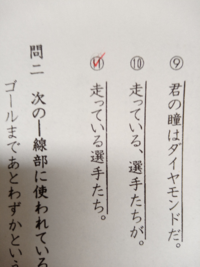 ⑨ 君の瞳はダイヤモンドだ。
⑩ 走っている、選手たちが。
⑪ 走っている選手たち。
問二 次の―線部に使われている
ゴールまであとわずかという